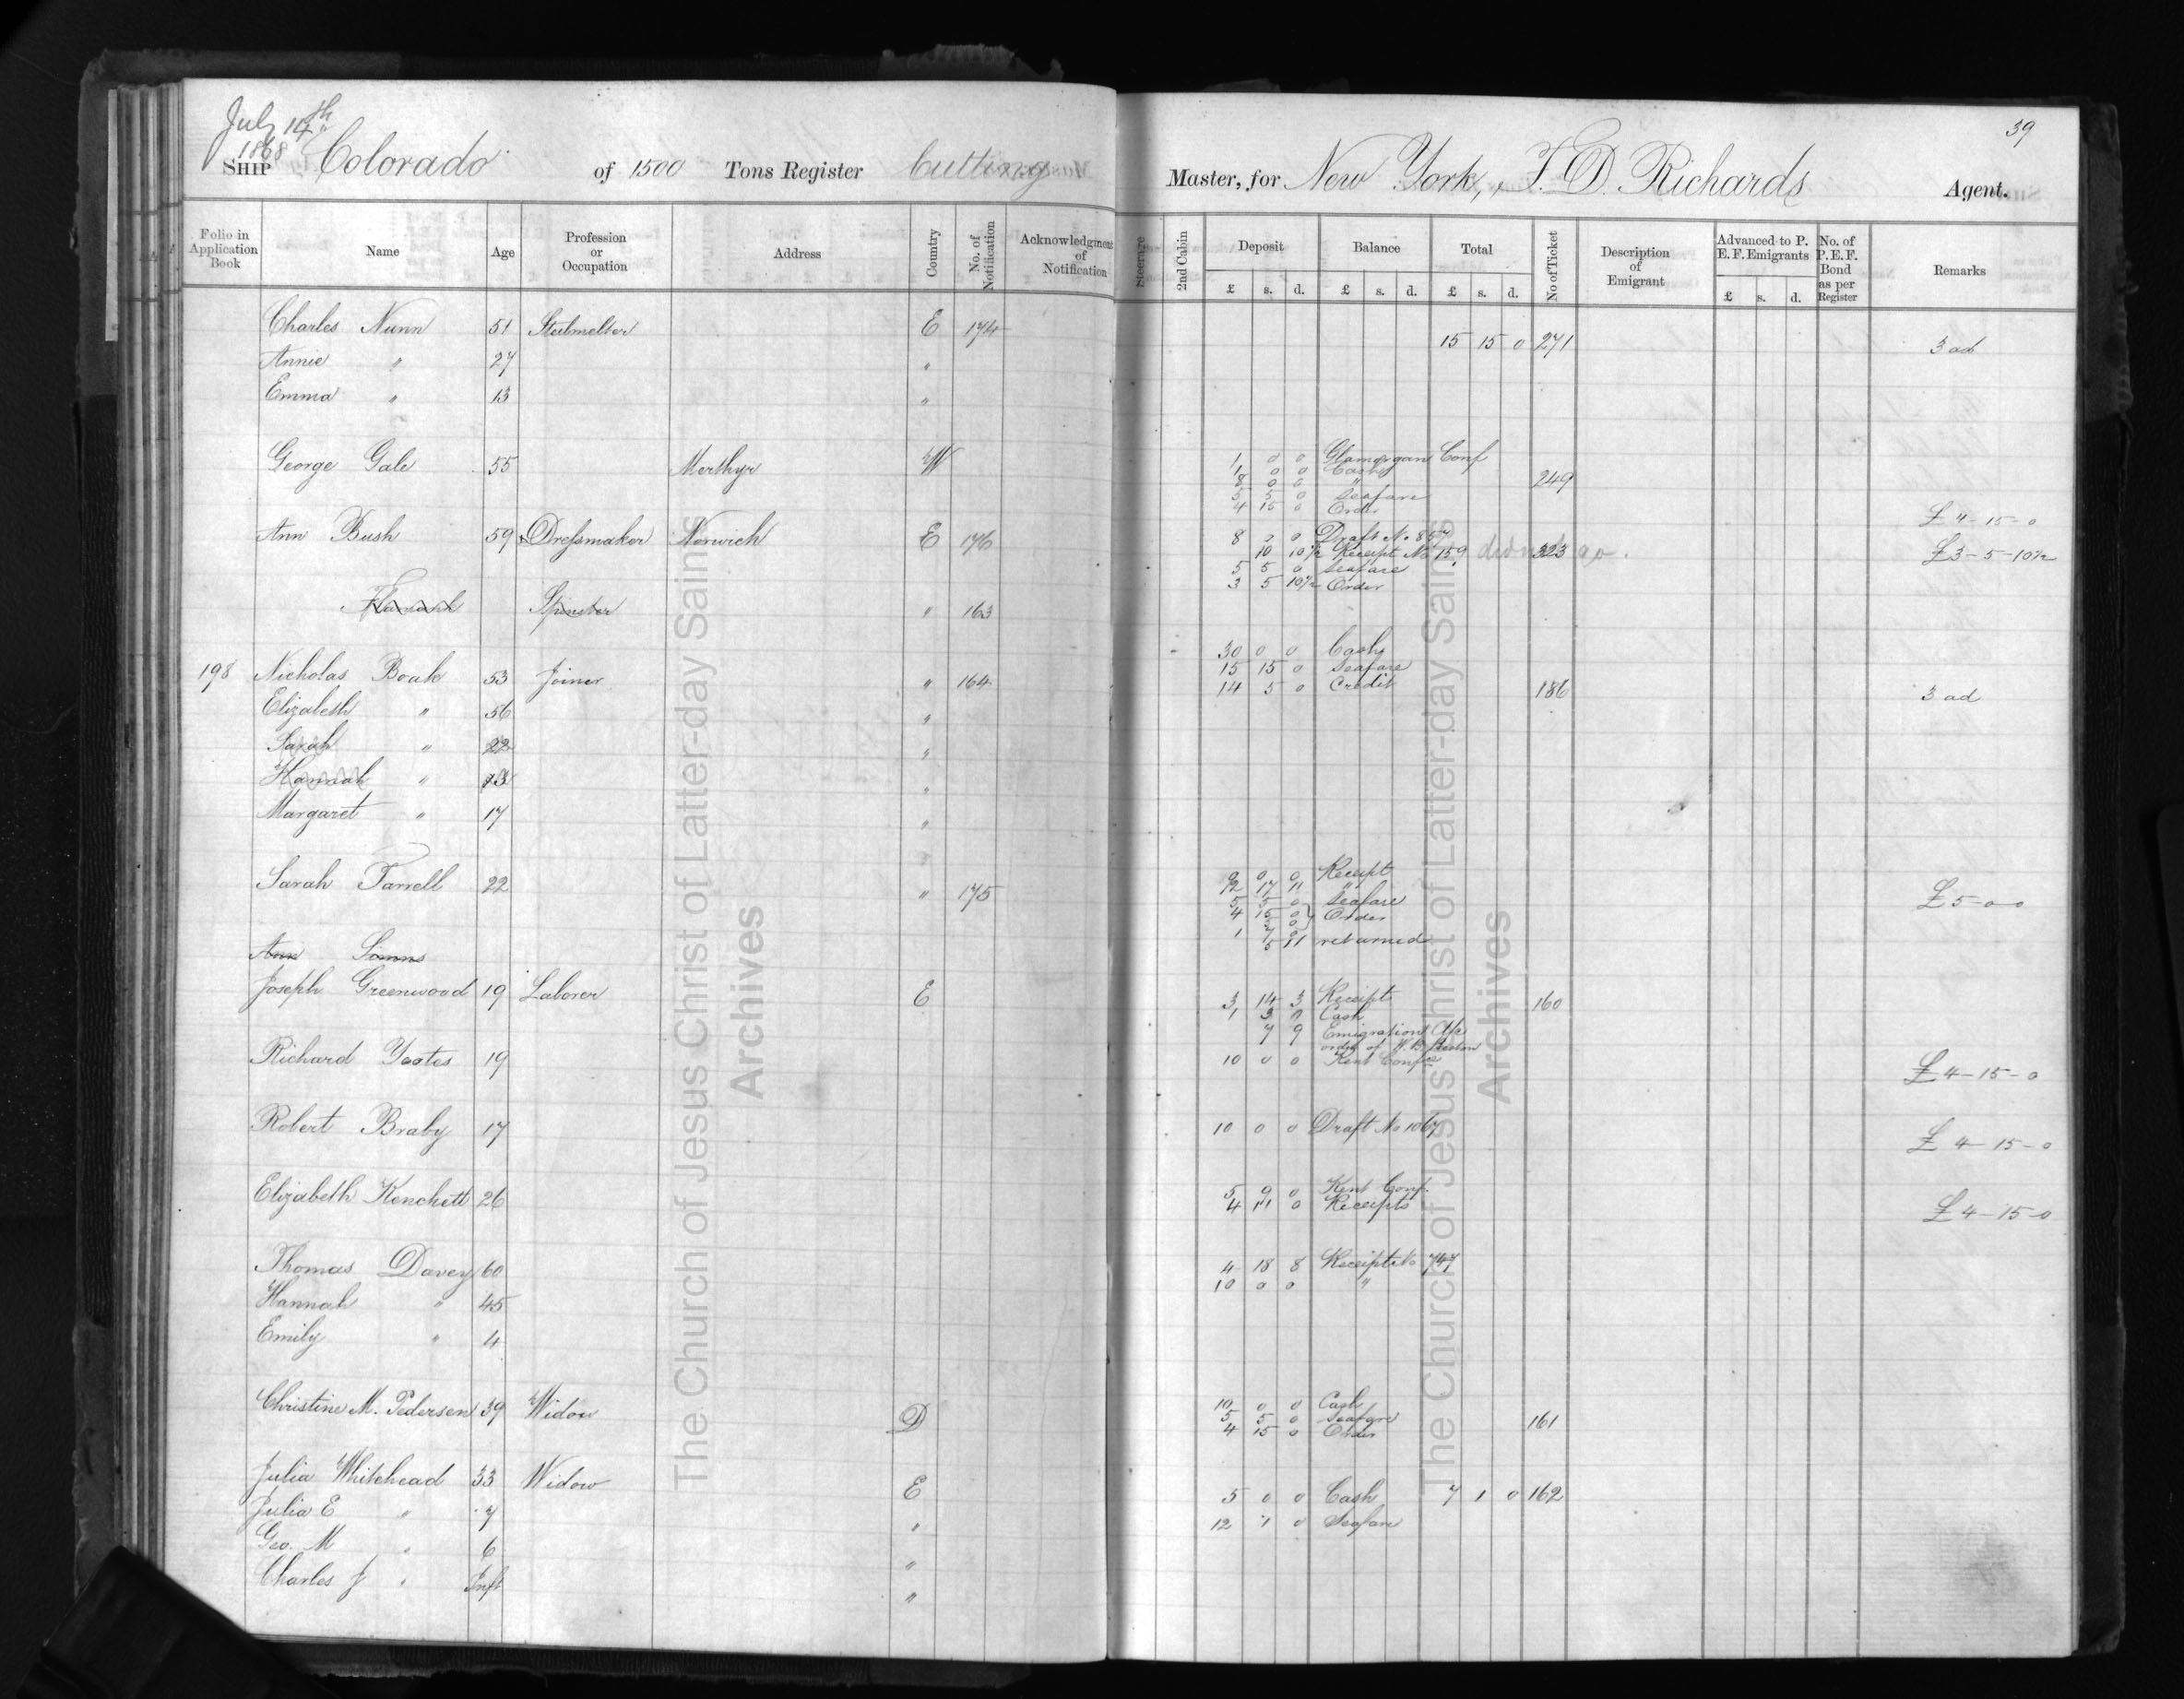 July 14th
1868
39
SHIP Colorado of 1500 Tons Register Cutting Master, for New York, F. D. Richards Agent.
Folio in Application Book Name Age Profession or Occupation Address Country No. of Notification Acknowledgment of Notification Steerage 2nd Cabin Deposit Balance Total No of Ticket Description of Emigrant Advanced to P. E. F. Emigrants No. of P. E. F. Bond as per Register Remarks
£ s. d. £ s. d. £ s. d. £ s. d.
Charles Nunn 51 Steelmelter E 174 15 15 0 271 3 ad
Annie " 27 "
Emma " 13 "
George Gale 55 Merthyr W 1 0 0 Glamorgan Conf
1 0 0 Cash
8 0 0 " 249
5 5 0 Seafare
4 15 0 Order £4-15-0
Ann Bush 59 Dressmaker Norwich E 176 8 0 0 Draft No
10 10½ Receipt No 159 did not go. 323 £3-5-10½
5 5 0 Seafare
3 5 10½ Order
Spinster " 163
30 0 0 Cash
15 15 0 Seafare
198 Nicholas Boak 53 Joiner " 164 14 5 0 Credit 186 3 ad
Elizabeth " 56 "
Sarah " 22 "
Hannah " 13 "
Margaret " 17 "
Sarah Farrell 22 " 175 9 0 0 Receipt
12 17 11 "
5 5 0 Seafare £5-0-0
4 15 0 Order
returned
Ann Simms
Joseph Greenwood 19 Laborer E 3 14 3 Receipt 160
1 3 0 Cash
7 9 Emigration A/c
order of W. B. Preston
Richard Yeates 19 10 0 0 Kent Confce £4-15-0
Robert Braby 17 10 0 0 Draft No 1067 £4-15-0
Elizabeth Kenchett 26 5 9 0 Kent Conf.
4 11 0 Receipts £4-15-0
Thomas Davey 60 4 18 8 Receipt No 747
10 0 0 "
Hannah " 45
Emily " 4
Christine M. Pedersen 39 Widow D 10 0 0 Cash
5 5 0 Seafare 161
4 15 0 Order
Julia Whitehead 33 Widow E 5 0 0 Cash 7 1 0 162
Julia E " 7 " 12 1 0 Seafare
Geo. M " 6 "
Charles J " Inft "
The Church of Jesus Christ of Latter-day Saints
Archives
The Church of Jesus Christ of Latter-day Saints
Archives